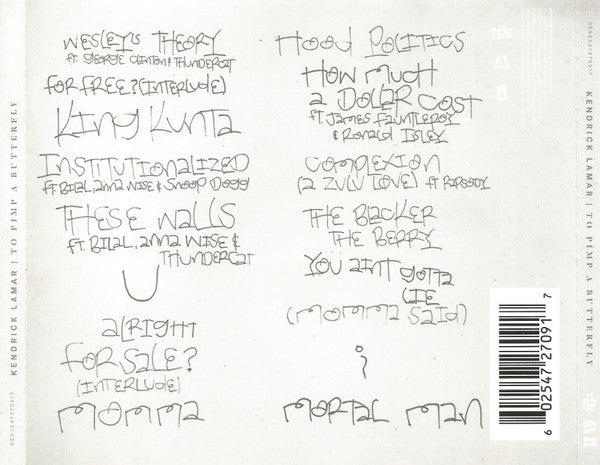 KENDRICK LAMAR | TO PIMP A BUTTERFLY
WESLEY'S THEORY
ft. GEORGE CLINTON & THUNDERCAT
FOR FREE? (INTERLUDE)
KING KUNTA
INSTITUTIONALIZED
ft BILAL, ANNA WISE & SNOOP DOGG
THESE WALLS
ft BILAL, ANNA WISE &
THUNDERCAT
U
ALRIGHT
FOR SALE?
(INTERLUDE)
MOMMA
HOOD POLITICS
HOW MUCH
A DOLLAR COST
ft JAMES FAUNTLEROY
& RONALD ISLEY
COMPLEXION
(A ZULU LOVE) ft RAPSODY
THE BLACKER
THE BERRY
YOU AINT GOTTA
LIE
(MOMMA SAID)
i
MORTAL MAN
6 02547 27091 7
KENDRICK LAMAR | TO PIMP A BUTTERFLY